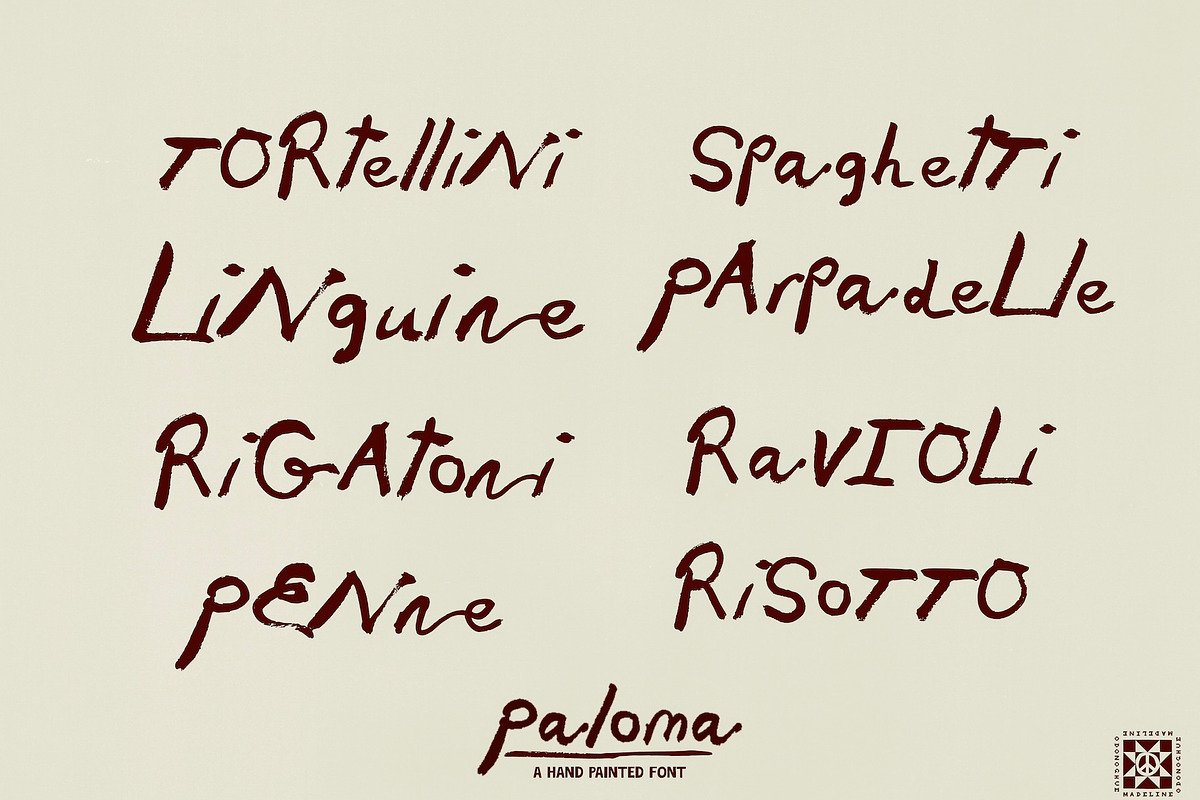 TORtelliNi
SpaghetTi
LiNguine
pArpadeLle
RiGAtoni
RaVIOLi
pENne
RiSoTTO
paloma
A HAND PAINTED FONT
MADELINE
ODONOGHUE
MADELINE